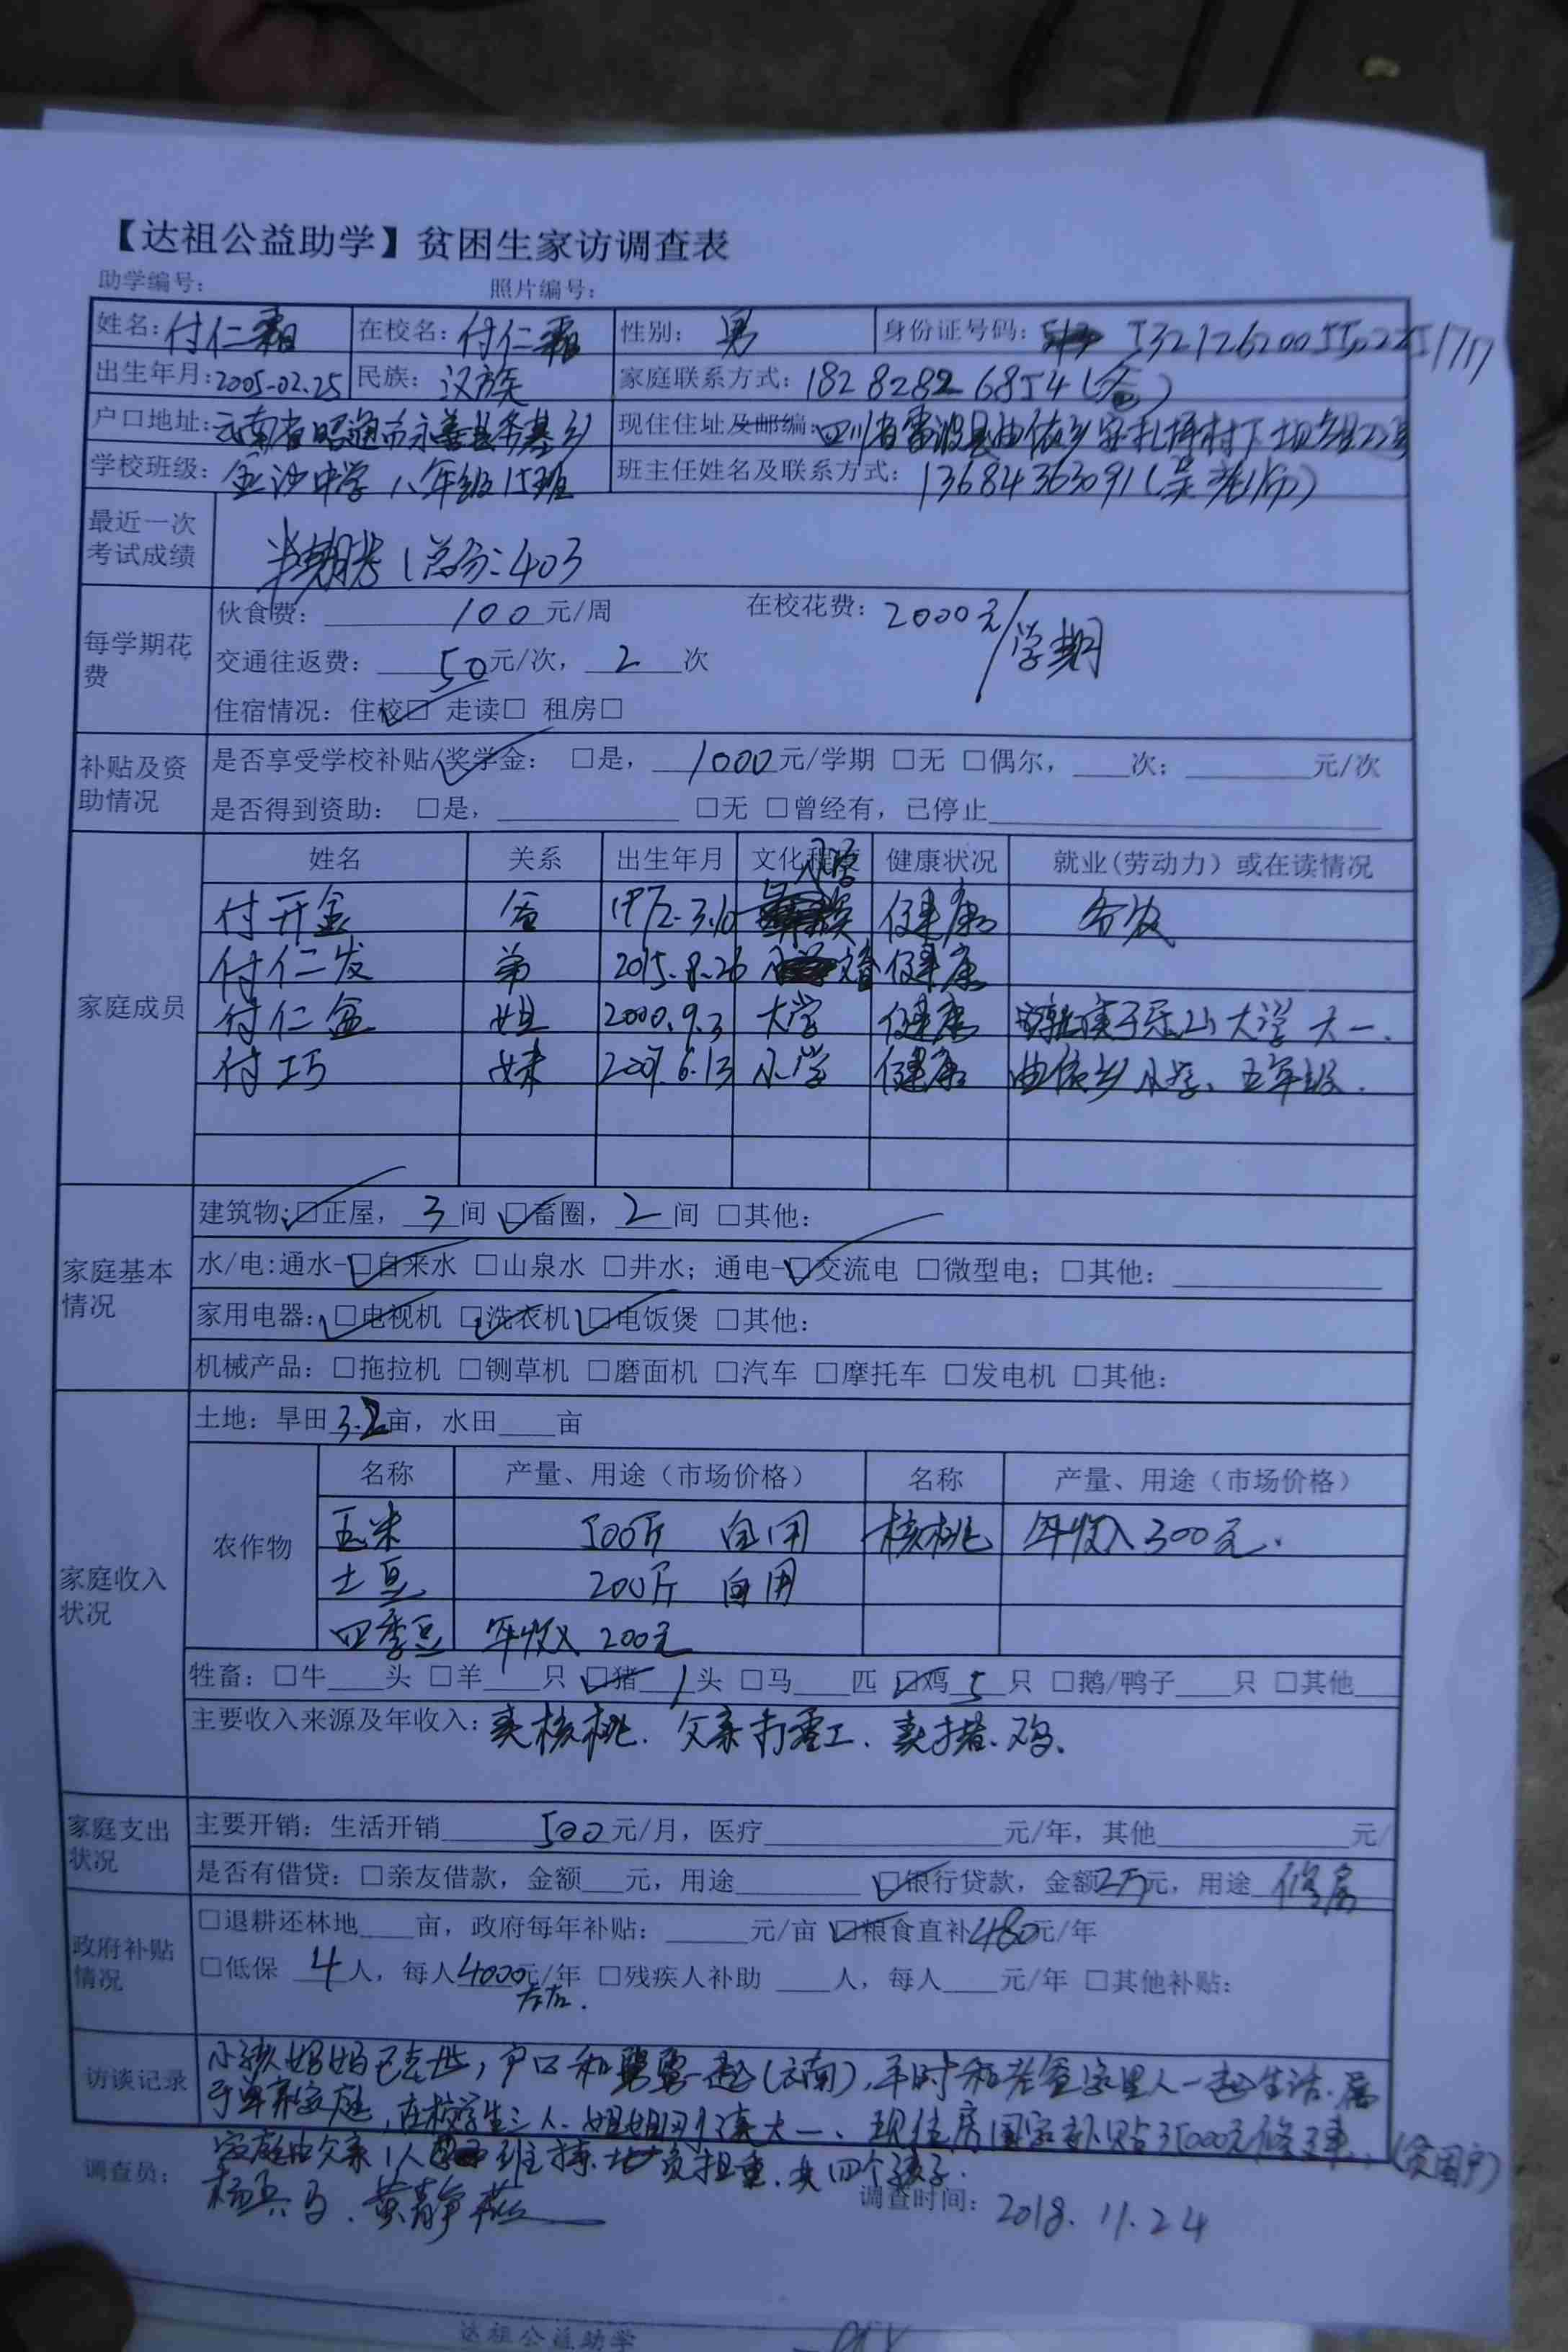 【达祖公益助学】贫困生家访调查表
助学编号： 照片编号：
姓名：付仁霜 在校名：付仁霜 性别：男 身份证号码：
出生年月：2005-02.25 民族：汉族 家庭联系方式：18282826854（爸）
户口地址：云南省昭通市永善县务基乡 现住住址及邮编：四川省雷波县曲依乡 坪村下坝组22号
学校班级：金沙中学八年级15班 班主任姓名及联系方式：13684363091（吴老师）
最近一次考试成绩 半期考（总分：403
每学期花费 伙食费：100元/周 在校花费：2000元/学期
交通往返费：50元/次，2次
住宿情况：住校☑ 走读□ 租房□
补贴及资助情况 是否享受学校补贴/奖学金： □是，1000元/学期 □无 □偶尔，____次；____元/次
是否得到资助： □是，____ □无 □曾经有，已停止____
家庭成员 姓名 关系 出生年月 文化程度 健康状况 就业(劳动力）或在读情况
付开金 爸 1972.3.10 小学 健康 务农
付仁发 弟 2015.8.26 文盲 健康
付仁 姐 2000.9.3 大学 健康 乐山大学 大一.
付巧 妹 2007.6.13 小学 健康 曲依乡小学、五年级.
家庭基本情况 建筑物：☑正屋，3间 ☑畜圈，2间 □其他：
水/电:通水-☑自来水 □山泉水 □井水；通电-☑交流电 □微型电；□其他：____
家用电器：☑电视机 ☑洗衣机 ☑电饭煲 □其他：
机械产品：□拖拉机 □铡草机 □磨面机 □汽车 □摩托车 □发电机 □其他：
家庭收入状况 土地：旱田3.2亩，水田____亩
农作物 名称 产量、用途（市场价格） 名称 产量、用途（市场价格）
玉米 500斤 自用 核桃 年收入300元.
土豆 200斤 自用
四季豆 年收入 200元
牲畜：□牛____头 □羊____只 ☑猪1头 □马____匹 ☑鸡5只 □鹅/鸭子____只 □其他____
主要收入来源及年收入：卖核桃. 父亲打零工、卖猪、鸡、
家庭支出状况 主要开销：生活开销500元/月，医疗____元/年，其他____元/
是否有借贷：□亲友借款，金额____元，用途____ ☑银行贷款，金额2万元，用途修房
政府补贴情况 □退耕还林地____亩，政府每年补贴：____元/亩 ☑粮食直补480元/年
□低保 4人，每人4000元/年 □残疾人补助 ____人，每人____元/年 □其他补贴：
左右.
访谈记录 小孩妈妈已去世，户口和舅舅一起（云南），平时和老爸家里人一起生活.属
于单亲家庭，在校学生三人、姐姐 读大一、现住房国家补贴35000元修建、（贫困户）
家庭由父亲1人 负担重.共四个孩子.
调查员：杨兵马、黄静燕 调查时间：2018.11.24
达祖公益助学